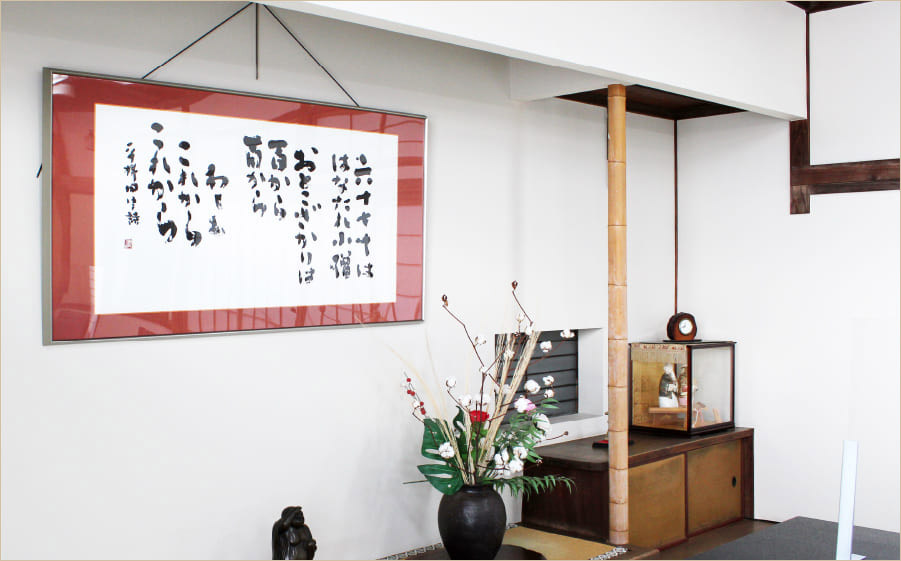 六十七十は
はなたれ小僧
おとこざかりは
百から
百から
わしも
これから
これから
平櫛田中詩